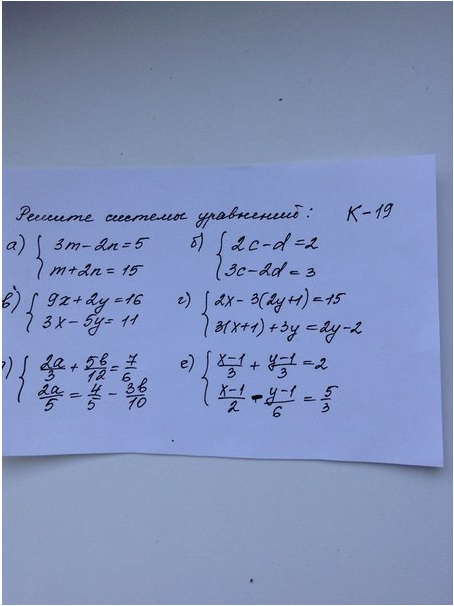 Решите системы уравнений: К-19
а) { 3m-2n=5
m+2n=15
б) { 2c-d=2
3c-2d=3
в) { 9x+2y=16
3x-5y=11
г) { 2x-3(2y+1)=15
3(x+1)+3y=2y-2
) { 2a/3 + 5b/12 = 7/6
2a/5 = 4/5 - 3b/10
е) { x-1/3 + y-1/3 = 2
x-1/2 - y-1/6 = 5/3